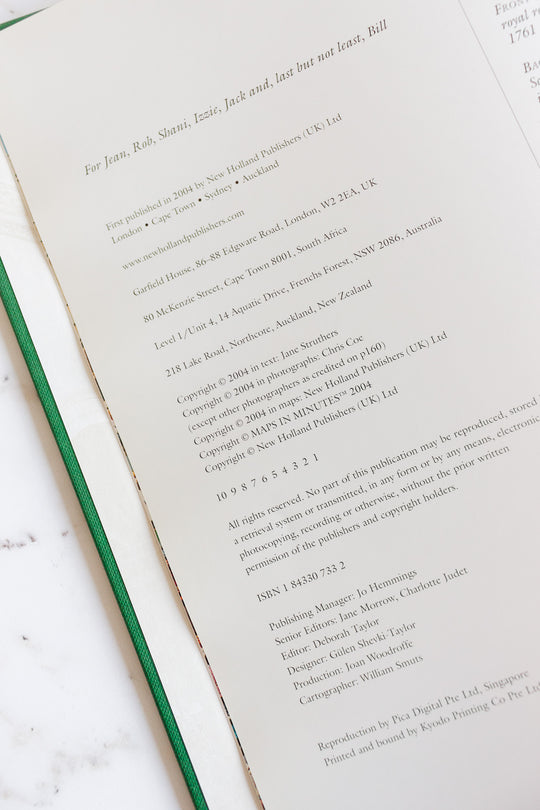 For Jean, Rob, Shani, Izzie, Jack and, last but not least, Bill
First published in 2004 by New Holland Publishers (UK) Ltd
London • Cape Town • Sydney • Auckland
www.newhollandpublishers.com
Garfield House, 86–88 Edgware Road, London, W2 2EA, UK
80 McKenzie Street, Cape Town 8001, South Africa
Level 1/Unit 4, 14 Aquatic Drive, Frenchs Forest, NSW 2086, Australia
218 Lake Road, Northcote, Auckland, New Zealand
Copyright © 2004 in text: Jane Struthers
Copyright © 2004 in photographs: Chris Coe
(except other photographers as credited on p160)
Copyright © 2004 in maps: New Holland Publishers (UK) Ltd
Copyright © MAPS IN MINUTES™ 2004
Copyright © New Holland Publishers (UK) Ltd
10 9 8 7 6 5 4 3 2 1
All rights reserved. No part of this publication may be reproduced, stored
a retrieval system or transmitted, in any form or by any means, electronic
photocopying, recording or otherwise, without the prior written
permission of the publishers and copyright holders.
ISBN 1 84330 733 2
Publishing Manager: Jo Hemmings
Senior Editors: Jane Morrow, Charlotte Judet
Editor: Deborah Taylor
Designer: Gülen Shevki-Taylor
Production: Joan Woodroffe
Cartographer: William Smuts
Reproduction by Pica Digital Pte Ltd, Singapore
Printed and bound by Kyodo Printing Co Pte Ltd
royal r
1761